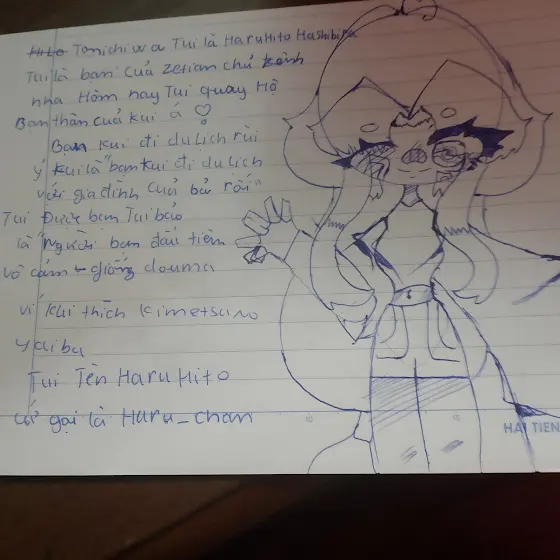 Hilo Tonichiwa Tui là HaruHito Hashibira
Tui là bạn của zetian chủ kênh
nha Hôm nay Tui quay Hộ
Bạn thân cuả kui á ♡
Bạn kui đi du lịch rùi
ý kui là "bạn kui đi du lịch
với gia đình cuả bả rồi"
Tui Được bạn Tui bảo
là "người bạn đầu tiên
vô cảm - giống douma
vì khi thích kimetsu no
yaiba
Tui Tên HaruHito
cứ gọi là Haru_chan
HẢI TIẾN